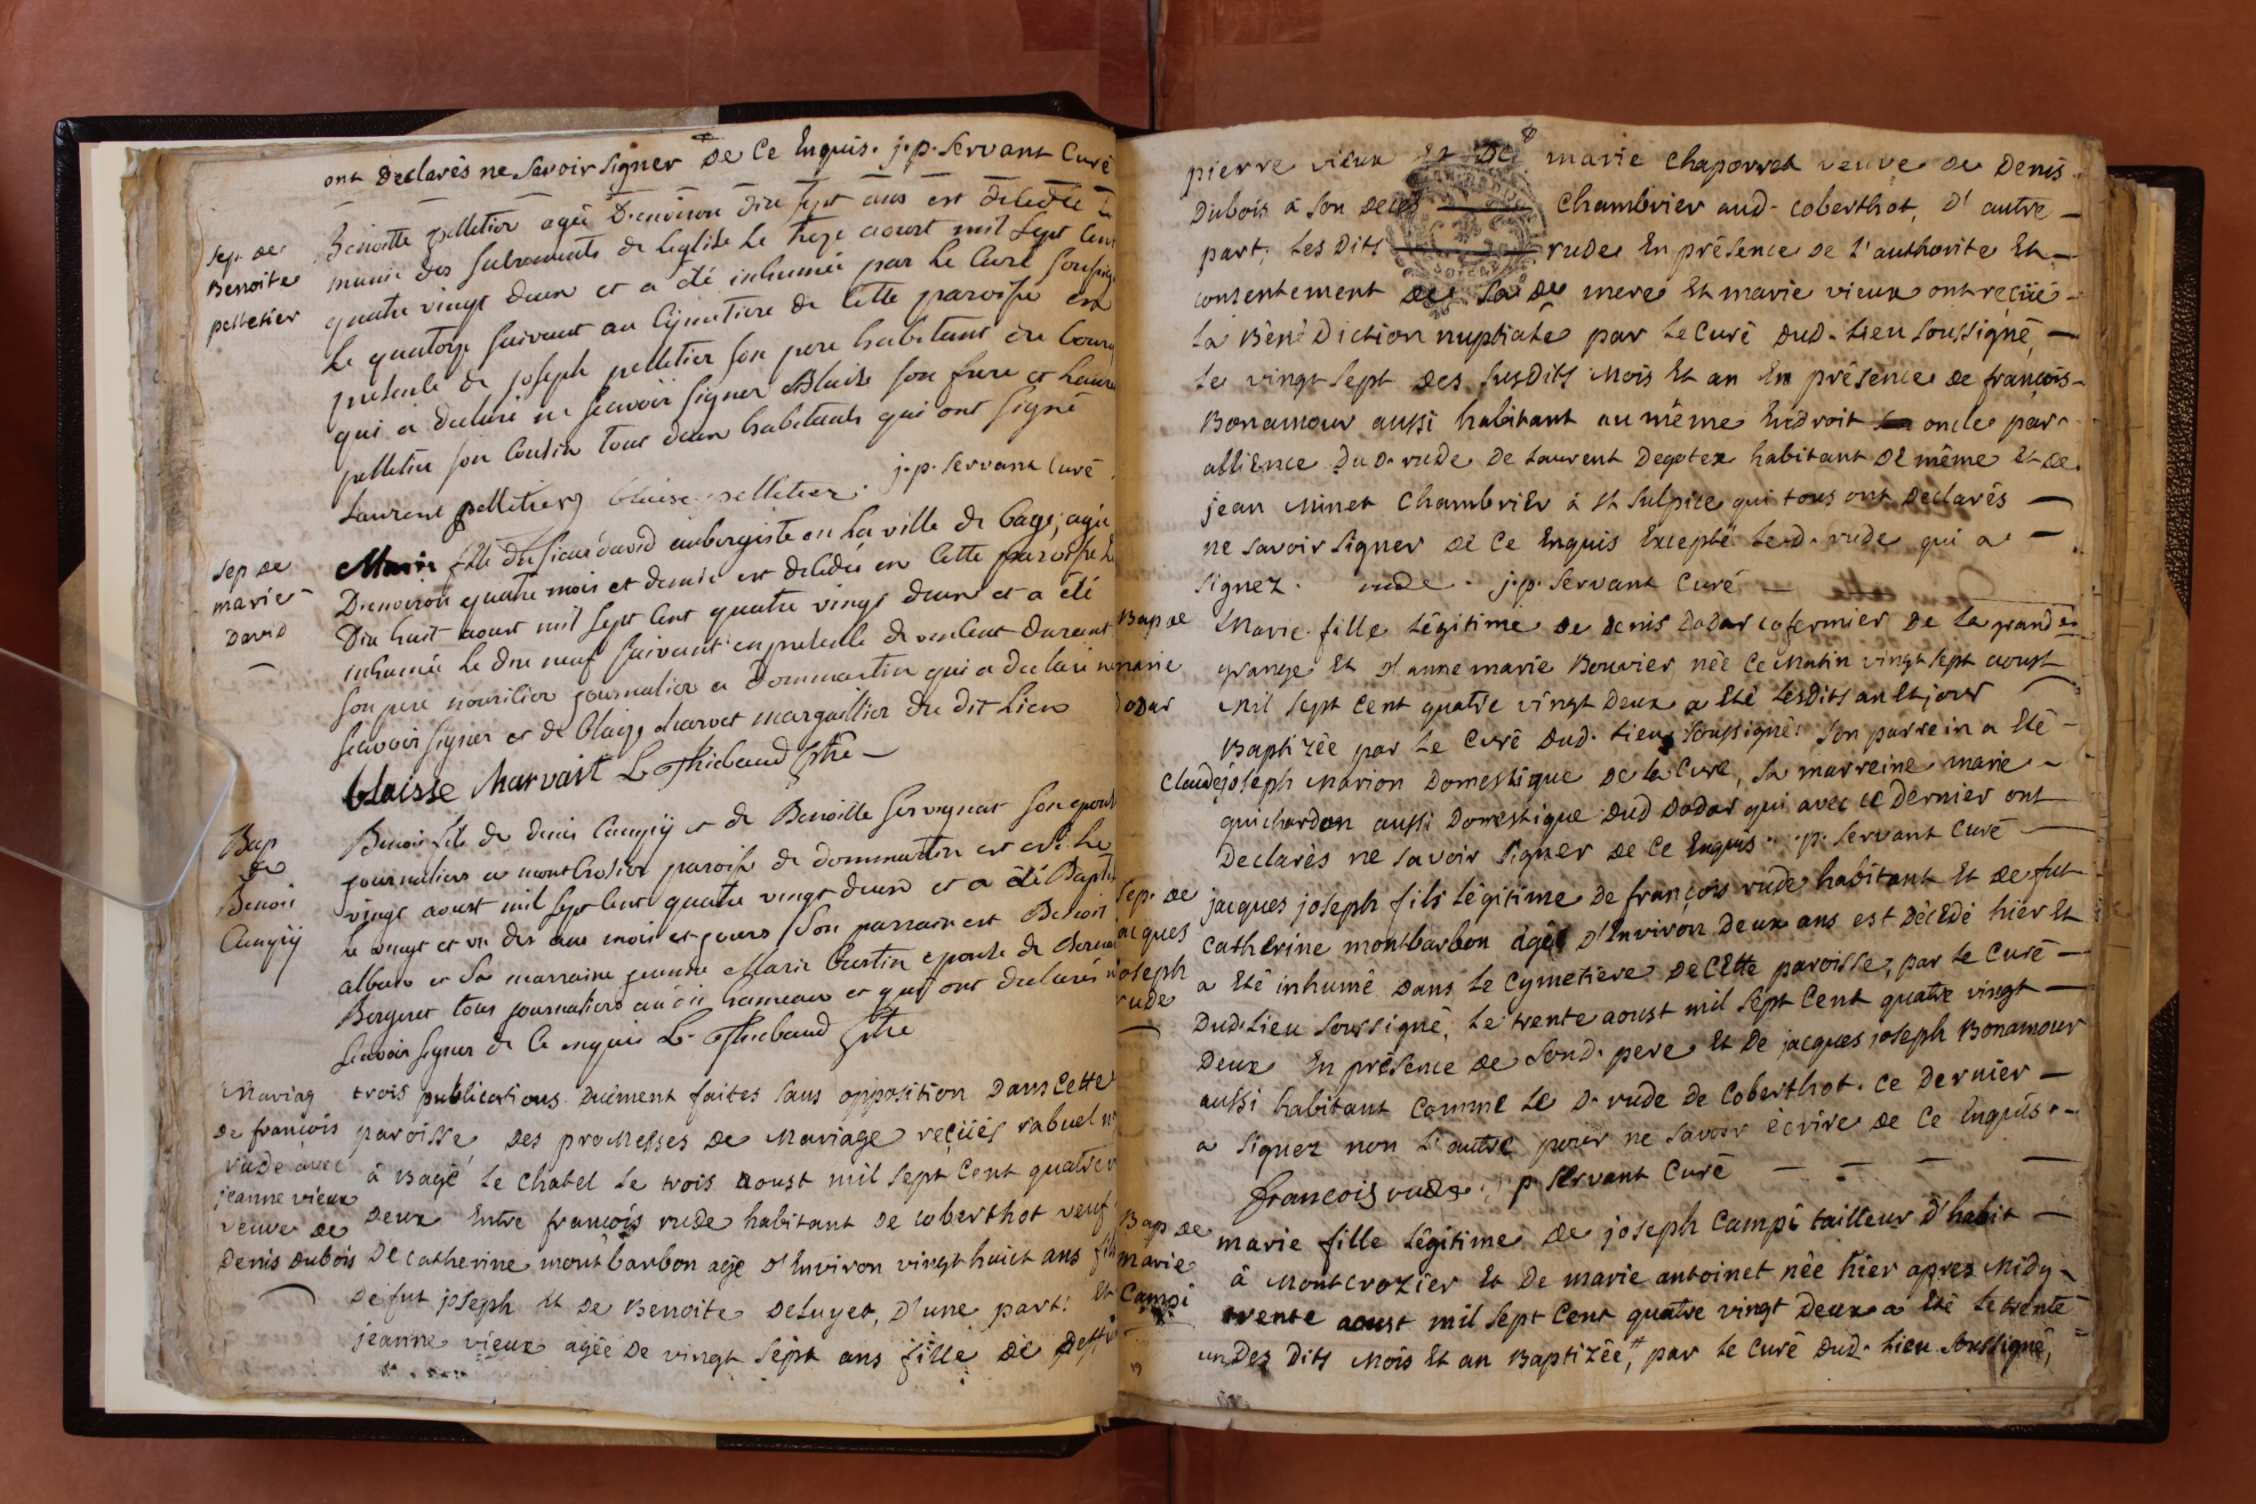 ont Declarés ne savoir signer De Ce Enquis. j.p. Servant Curé
Sep. de
Benoite
pelletier
Benoitte pelletier agée D'environ dix sept ans est decedée
munie des sacrements de leglise le treze aoust mil sept cent
quatre vingt deux et a été inhumée par le curé soussigné
le quatorze suivant au cymetiere de cette paroisse en
presence de joseph pelletier son pere habitant du bourg
qui a declaré ne scavoir signer Blaise son frere et laurent
pelletier son cousin tous deux habitants qui ont signé
Laurent pelletier blaise pelletier. j.p. servant curé
Sep de
marie
David
Marie fille du sieur david aubergiste en la ville de Bagé, agée
D'environ quatre mois et demie est decedée en cette paroisse le
Dix huit aoust mil sept cent quatre vingt deux et a été
inhumée le dix neuf suivant en presence de
son pere nouricier journalier a Dommartin qui a declaré ne
scavoir signer et de Blaize charvet marguillier du dit Lieu
blaisse charvait L. Thiebaud ptre
Bap
de
Benoi
Cangiÿ
Benoi fils de denis Cangiÿ et de Benoitte servignat son epouse
journaliers a montcrosier paroisse de dommartin est né le
vingt aoust mil sept cent quatre vingt deux et a été Baptisé
le vingt et un des dits mois et jours Son parrain est Benoit
alban et sa marraine jeanne Marie Crestin epouse de
Bergeret tous journaliers au dit hameau et qui ont declarés ne
scavoir signer de ce enquis L. Thiebaud ptre
Mariag
de françois
rude avec
jeanne vieux
veuve de
Denis Dubois
trois publications Duëment faites sans opposition Dans Cette
paroisse, Des promesses de Mariage reçuës rabuel
à Bagé le Chatel le trois aoust mil sept Cent quatre
Deux Entre françois rude habitant de coberthot veuf
De catherine montbarbon agé D'Environ vingt huict ans fils
Défut joseph Et de Benoite Deluyer, D'une part: Et
jeanne vieux agée De vingt sept ans fille dé deffu
pierre vieux Et Dé marie chaporret veuve de Denis
Dubois à son deces Chambrier aud. coberthot, D'autre
part; les Dits rude En présence de l'authorite Et
consentement de sa De mere Et marie vieux ont reçüé
la Bénédiction nuptiale par le curé Dud. lieu soussigné,
le vingt sept des susdits Mois Et an En présence de françois
Bonamour aussi habitant au même Endroit oncle par
allience Du d. rude De laurent Degotex habitant De même Et de
jean Minet Chambrier à st sulpice qui tous ont Declarés
ne savoir signer dé Ce Enquis Excepté le d. rude qui a
signez. rude. j.p. Servant Curé
Bap de
marie
dodar
Marie fille légitime de denis Dodar cofermier De la grande
grange Et D'anne marie Bouvier née Ce Matin vingt sept aoust
Mil sept Cent quatre vingt Deux a Eté lesdits an Et jour
Baptizée par le Curé Dud. lieu soussigné: son parrein a Eté
Claude joseph Marion Domestique de la Cure, sa marreine marie
guichardon aussi Domestique Dud Dodar qui avec ce Dernier ont
Declarés ne savoir signer de Ce Enquis. j.p. servant curé
Sep. de
jacques
joseph
rude
jacques joseph fils légitime de françois rude habitant Et de fut
catherine montbarbon agé D'Environ Deux ans est Décédé hier Et
a Eté inhumé Dans le Cymetiere De Cette paroisse, par le Curé
Dud. lieu soussigné, le trente aoust mil sept Cent quatre vingt
Deux En présence de son d. pere Et De jacques joseph Bonamour
aussi habitant Comme le D. rude De Coberthot. Ce Dernier
a signez non l'autre pour ne savoir écrire de Ce Enquis.
francois rude. j.p. Servant Curé
Bap de
marie
Campi
marie fille légitime de joseph Campi tailleur D'habit
à Montcrozier Et De marie antoinet née hier apres Midy
trente aoust mil sept Cent quatre vingt Deux a Eté le trente
un Des Dits Mois Et an Baptizée, par le Curé Dud. lieu soussigné,